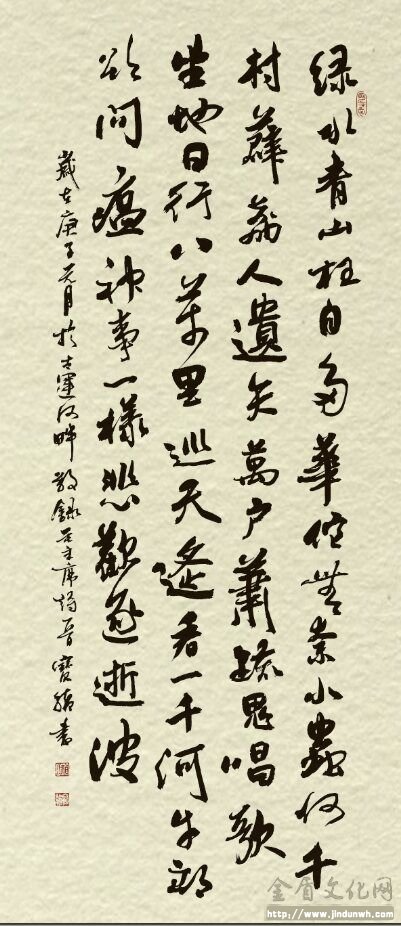 绿水青山枉自多華佗無奈小蟲何千
村薜荔人遺矢萬户蕭疏鬼唱歌
坐地日行八萬里巡天遙看一千河牛郎
欲問瘟神事一樣悲歡逐逝波
歲在庚子元月於古運河畔敬錄毛主席詩寶書
金盾文化网
http://www.jindunwh.com